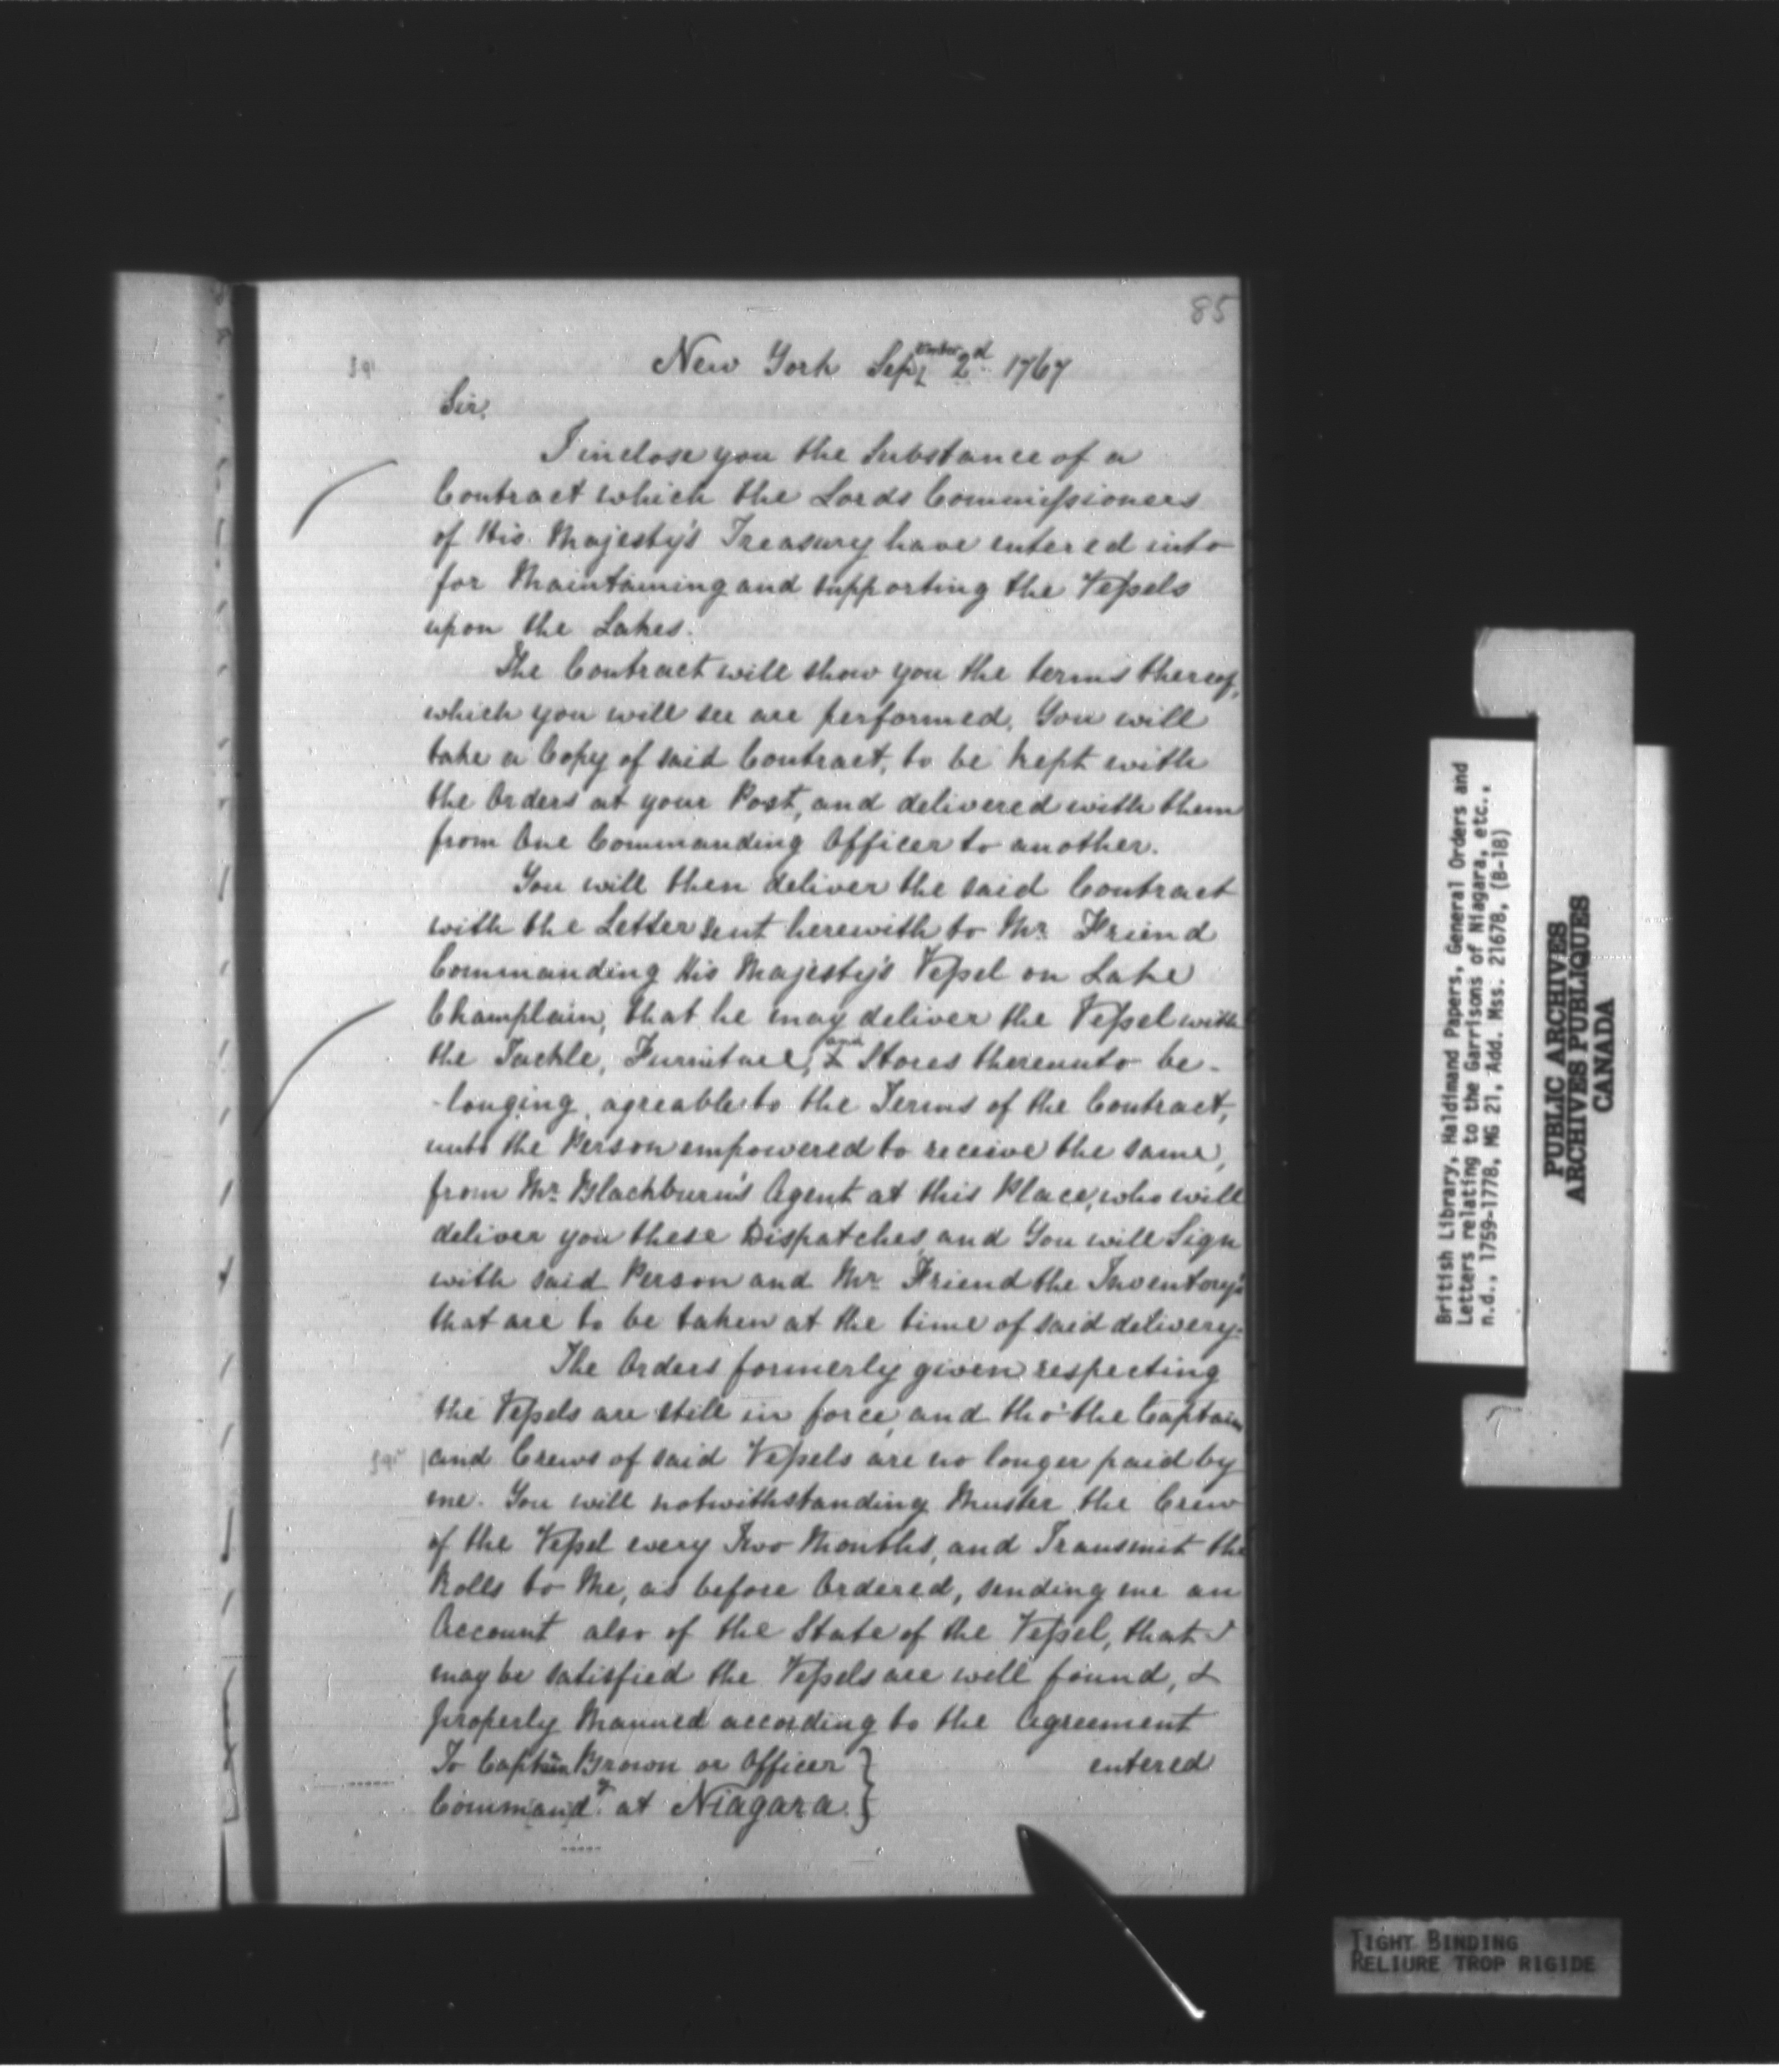 85
New York September 2d. 1767
Sir,
I inclose you the Substance of a
Contract which the Lords Commissioners
of His Majesty's Treasury have entered into
for Maintaining and supporting the Vessels
upon the Lakes.
The Contract will show you the terms thereof,
which you will see are performed. You will
take a Copy of said Contract, to be kept with
the Orders at your Post, and delivered with them
from One Commanding Officer to another.
You will then deliver the said Contract
with the Letter sent herewith to Mr. Friend
Commanding His Majesty's Vessel on Lake
Champlain, that he may deliver the Vessel with
the Tackle, Furniture, and Stores thereunto be-
-longing, agreable to the Terms of the Contract,
unto the Person empowered to receive the same,
from Mr. Blackburn's Agent at this Place, who will
deliver you these Dispatches, and You will Sign
with said Person and Mr. Friend the Inventory's
that are to be taken at the time of said delivery.
The Orders formerly given respecting
the Vessels are still in force, and tho' the Captain
and Crews of said Vessels are no longer paid by
me. You will notwithstanding Muster the Crew
of the Vessel every Two Months, and Transmit the
Rolls to Me, as before Ordered, sending me an
Account also of the State of the Vessel, that I
may be satisfied the Vessels are well found, &
properly Manned according to the Agreement
entered
To Captain Brown or Officer
Commandg. at Niagara.
British Library, Haldimand Papers, General Orders and
Letters relating to the Garrisons of Niagara, etc.,
n.d., 1759-1778, MG 21, Add. Mss. 21678, (B-18)
PUBLIC ARCHIVES
ARCHIVES PUBLIQUES
CANADA
TIGHT BINDING
RELIURE TROP RIGIDE